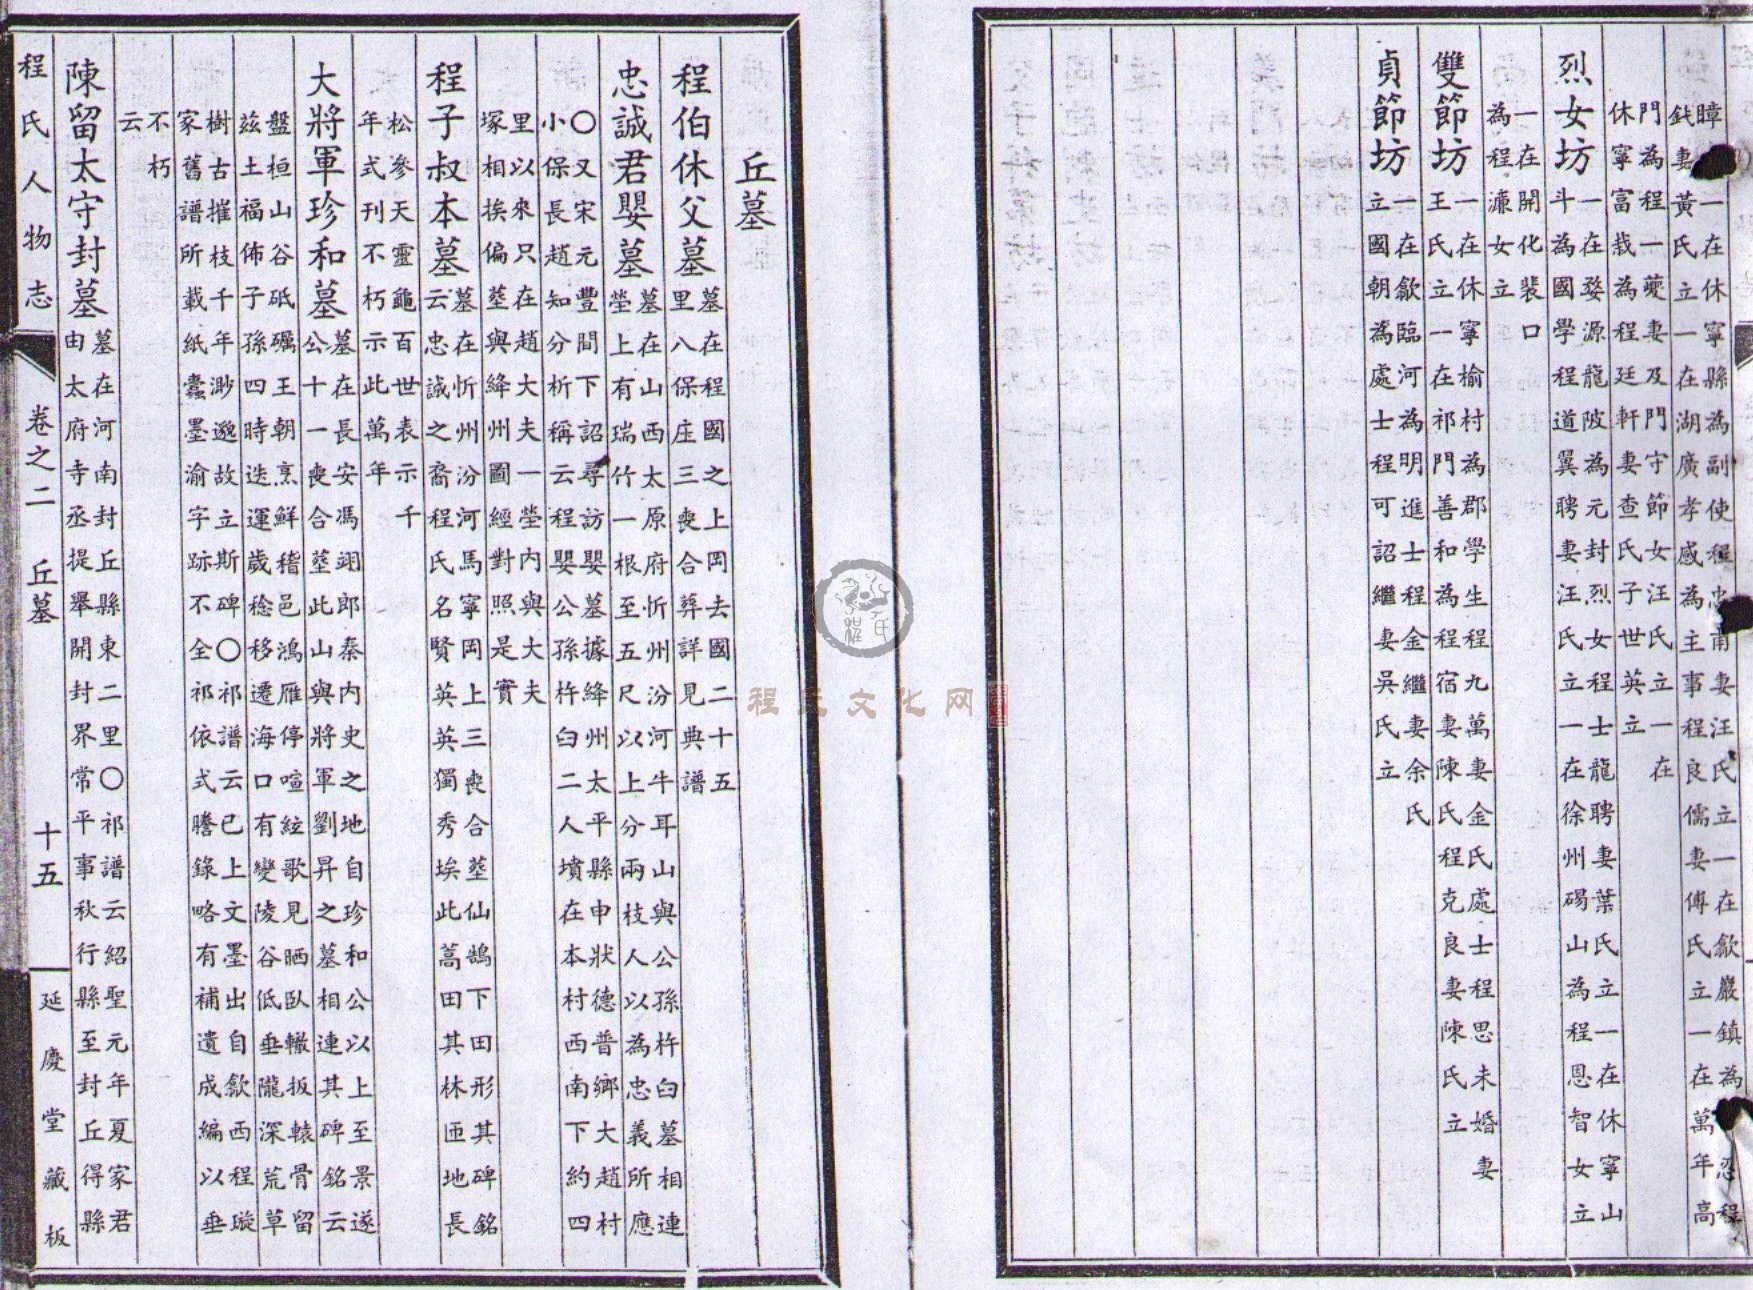 一在休寧縣為副使程忠甫妻汪氏立一在歙巖鎮為
妻黃氏立一在湖廣孝感為主事程良儒妻傅氏立一在萬年高
門為程一夔妻及門守節女汪氏立一在
休寧富栽為程廷軒妻查氏子世英立
烈女坊
一在婺源龍陂為元封烈女程士龍聘妻葉氏立一在休寧山
斗為國學程道翼聘妻汪氏立一在徐州碭山為程恩智女立
一在開化裴口
為程濂女立
雙節坊
一在休寧榆村為郡學生程九萬妻金氏處士程思未婚妻
王氏立一在祁門善和為程宿妻陳氏程克良妻陳氏立
貞節坊
一在歙臨河為明進士程金繼妻余氏
立國朝為處士程可詔繼妻吳氏立
丘墓
程伯休父墓
墓在程國之上岡去國二十五
里八保庄三喪合葬詳見典譜
忠誠君嬰墓
墓在山西太原府忻州汾河牛耳山與公孫杵臼墓相連
塋上有瑞竹一根至五尺以上分兩枝人以為忠義所應
〇又宋元豐間下詔尋訪嬰墓據絳州太平縣申狀德普鄉大趙村
小保長趙知分析稱云程嬰公孫杵臼二人墳在本村西南下約四
里以來只在趙大夫一塋內與大夫
塚相挨偏塟與絳州圖經對照是實
程子叔本墓
墓在忻州汾河馬寧岡上三喪合塟仙鵠下田形其碑銘
云忠誠之裔程氏名賢英英獨秀埃此蒿田其林匝地長
松參天靈龜百世表示千
年式刊不朽示此萬年
大將軍珍和墓
墓在長安馮翊郎秦內史之地自珍和公以上至景遂
公十一喪合塟此山與將軍劉昇之墓相連其碑銘云
盤桓山谷砥礪王朝烹鮮稽邑鴻雁停喧絃歌見晒臥轍扳轅骨留
茲土福佈子孫四時迭運歲稔移遷海口有變陵谷低垂隴深荒草
樹古摧枝千年渺邈故立斯碑〇祁譜云已上文墨出自歙西程璇
家舊譜所載紙蠹墨渝字跡不全祁依式謄錄略有補遺成編以垂
不朽
云
陳留太守封墓
墓在河南封丘縣東二里〇祁譜云紹聖元年夏家君
由太府寺丞提舉開封界常平事秋行縣至封丘得縣
程氏人物志
卷之二 丘墓
十五
延慶堂藏板
程氏文化网